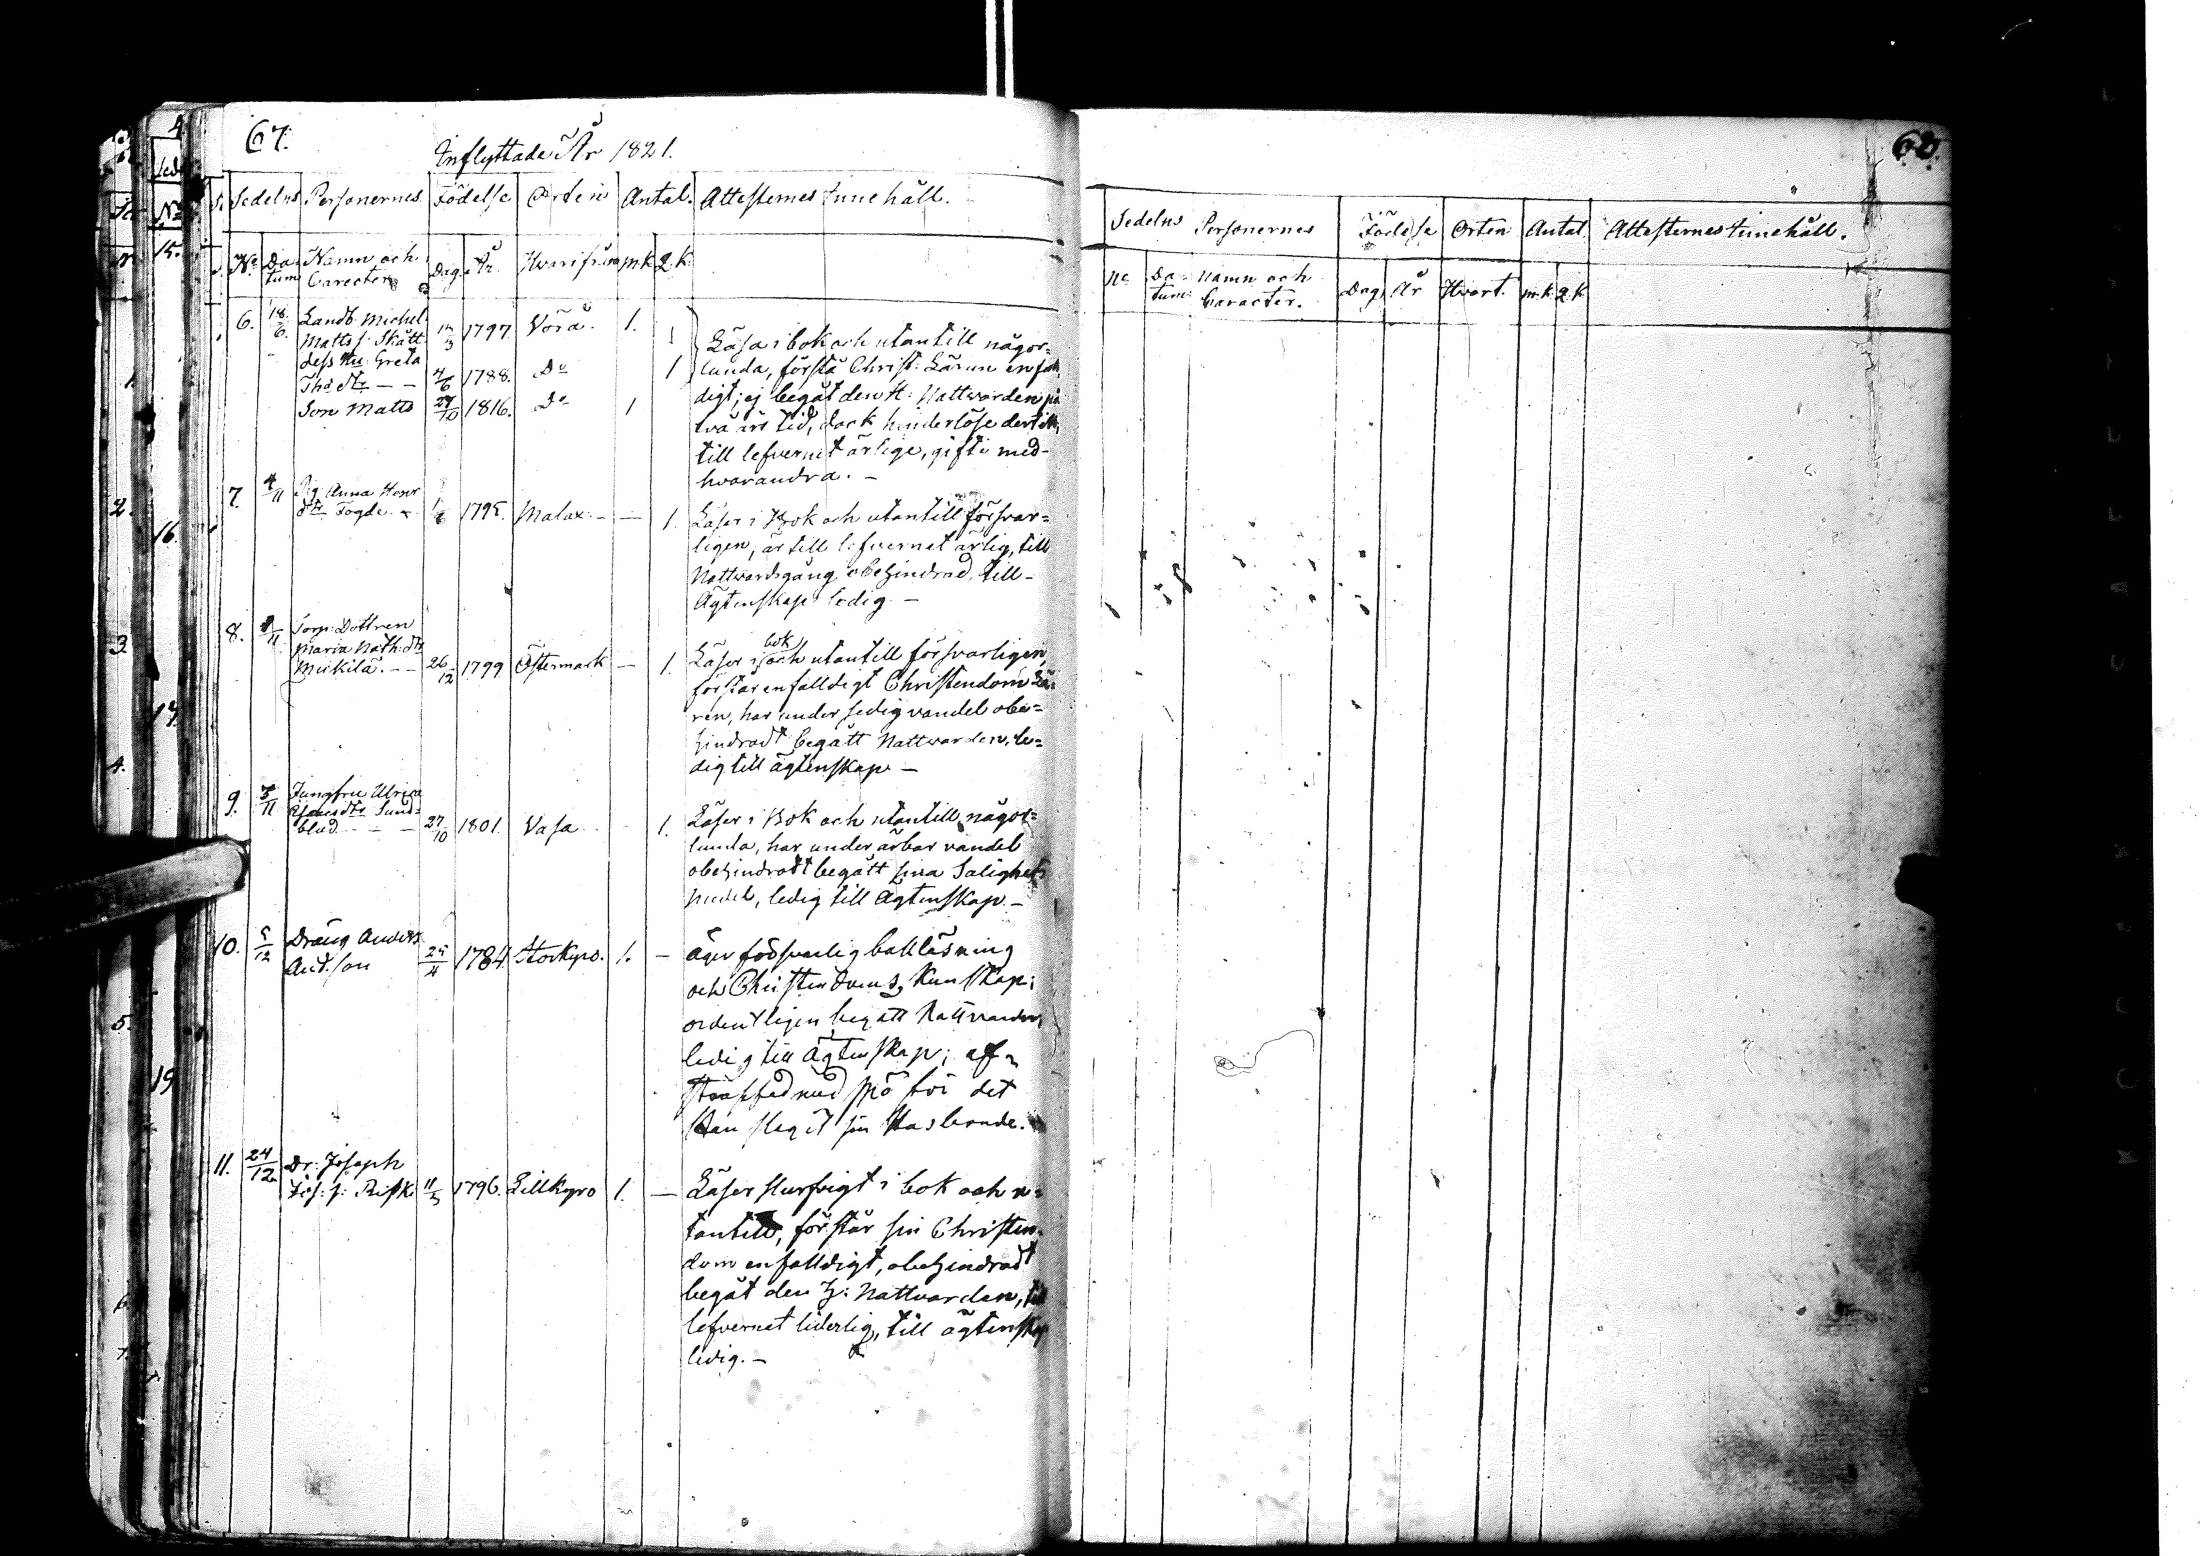 67.
Inflyttade År 1821.
Sedelns Personernes Födelse Orten Antal. Attesternes Innehåll.
No. Datum Namn och Caracter Dag. År. Hvarifrån mk. Qk.
6. 18/6. Landb. Michel
Matts s. Skått 1797. Vörå. 1.
dess Hu: Greta
Tho dtr - - 4/6 1788. Do 1
Son Matts 27/10 1816. Do 1
Läsa i bok och utantill någor=
lunda, förstå Christ: Lärun enfal
digt; ej begåt den H: Nattwarden på
två års tid, dock hinderlöse dertill,
till lefvernet ärlige, gifte med-
hvarandra. -
7. 4/11 Pig: Anna Henr
dtr Fogde. 1795. Malax - - 1.
Läser i Bok och utantill försvar=
ligen, är till lefvernet ärlig, till
Nattwardsgång obehindrad, till-
Ägtenskap ledig. -
8. Torp: Dottren
Maria Math: dtr
Mickilä. - - 26/12 1799 Östermark - 1.
Läser i bok och utantill försvarligen,
förstår enfalldigt Christendoms Lä
ren, har under sedig vandel obe=
hindradt begått Nattwarden, le=
dig till ägtenskap -
9. 5/11 Jungfru Ulrica
Sund=
blad - - - 27/10 1801. Vasa - 1.
Läser i Bok och utantill någor=
lunda, har under ärbar vandel
obehindradt begått sina Salighets
medel, ledig till Ägtenskap. -
10. 5/12 Dräng Anders
And.son 25/4 1784. Storkyro. 1. -
äger försvarlig bokläsning
och Christendoms Kunskap;
ordentligen begått Nattvarden,
ledig till Ägtenskap; af=
straffad med spö för det
han slagit sin Husbonde.
11. 24/12 Dr: Joseph
Jos: s: Risk 11/3 1796. Lillkyro 1. -
Läser slurfvigt i bok och u=
tantill, förstår sin Christen=
dom enfalldigt, obehindradt
begåt den H: Nattvarden, till
lefvernet liderlig, till ägtenskap
ledig. -
68.
Sedelns Personernes Födelse Orten Antal. Attesternes innehåll.
No Datum Namn och Caracter. Dag. År Hvart. mk. Qk.
4
Sed
No
15.
16
17.
19
1.
2.
3.
4.
5.
6.
7.